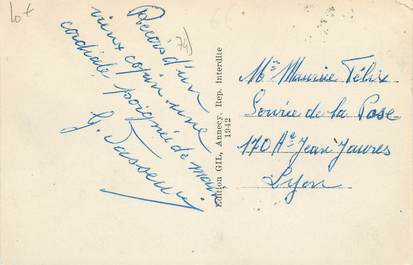 Lot
75
Reçois d'un
vieux copain une
cordiale poignée de main
G.
Edition GIL, Annecy, Rep. Interdite
1942
Mr Maurice Félix
de la Pose
170 Ae Jean Jaures
Lyon